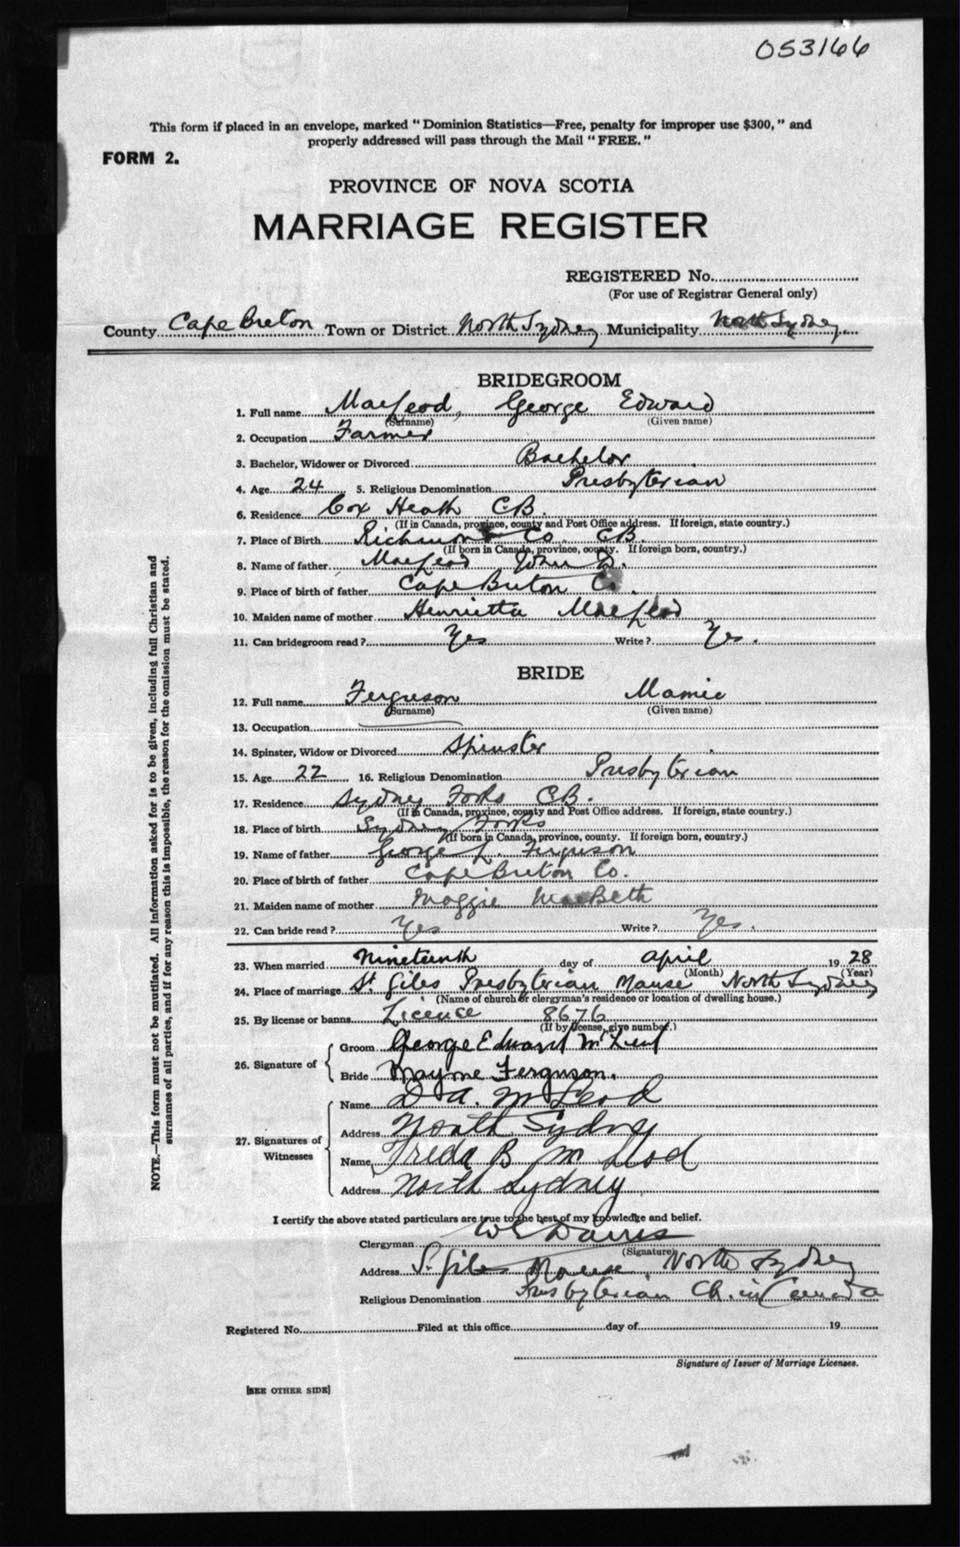 053166
This form if placed in an envelope, marked "Dominion Statistics—Free, penalty for improper use $300," and
properly addressed will pass through the Mail "FREE."
FORM 2.
PROVINCE OF NOVA SCOTIA
MARRIAGE REGISTER
REGISTERED No.
(For use of Registrar General only)
County Cape Breton Town or District North Sydney Municipality North Sydney
BRIDEGROOM
1. Full name MacLeod, George Edward
(Surname) (Given name)
2. Occupation Farmer
3. Bachelor, Widower or Divorced Bachelor
4. Age 24 5. Religious Denomination Presbyterian
6. Residence Cox Heath CB.
(If in Canada, province, county and Post Office address. If foreign, state country.)
7. Place of Birth Richmond Co. CB.
(If born in Canada, province, county. If foreign born, country.)
8. Name of father MacLeod John
9. Place of birth of father Cape Breton Co.
10. Maiden name of mother Henrietta MacLeod
11. Can bridegroom read? Yes Write? Yes.
BRIDE
12. Full name Ferguson Mamie
(Surname) (Given name)
13. Occupation
14. Spinster, Widow or Divorced Spinster
15. Age 22 16. Religious Denomination Presbyterian
17. Residence Sydney Forks CB.
(If in Canada, province, county and Post Office address. If foreign, state country.)
18. Place of birth Sydney Forks
(If born in Canada, province, county. If foreign born, country.)
19. Name of father George L. Ferguson
20. Place of birth of father Cape Breton Co.
21. Maiden name of mother Maggie MacBeth
22. Can bride read? Yes Write? Yes.
23. When married Nineteenth day of April 1928
(Month) (Year)
24. Place of marriage St. Giles Presbyterian Manse North Sydney
(Name of church or clergyman's residence or location of dwelling house.)
25. By license or banns Licence 8676
(If by license, give number.)
26. Signature of
Groom George Edward McLeod
Bride Mayme Ferguson.
27. Signatures of Witnesses
Name D A. McLeod
Address North Sydney
Name Freda B McLeod
Address North Sydney
I certify the above stated particulars are true to the best of my knowledge and belief.
Clergyman Davis
(Signature)
Address St. Giles Manse North Sydney
Religious Denomination Presbyterian Ch. in Canada
Registered No. Filed at this office day of 19
Signature of Issuer of Marriage Licenses.
[SEE OTHER SIDE]
NOTE.—This form must not be mutilated. All information asked for is to be given, including full Christian and
surnames of all parties, and if for any reason this is impossible, the reason for the omission must be stated.